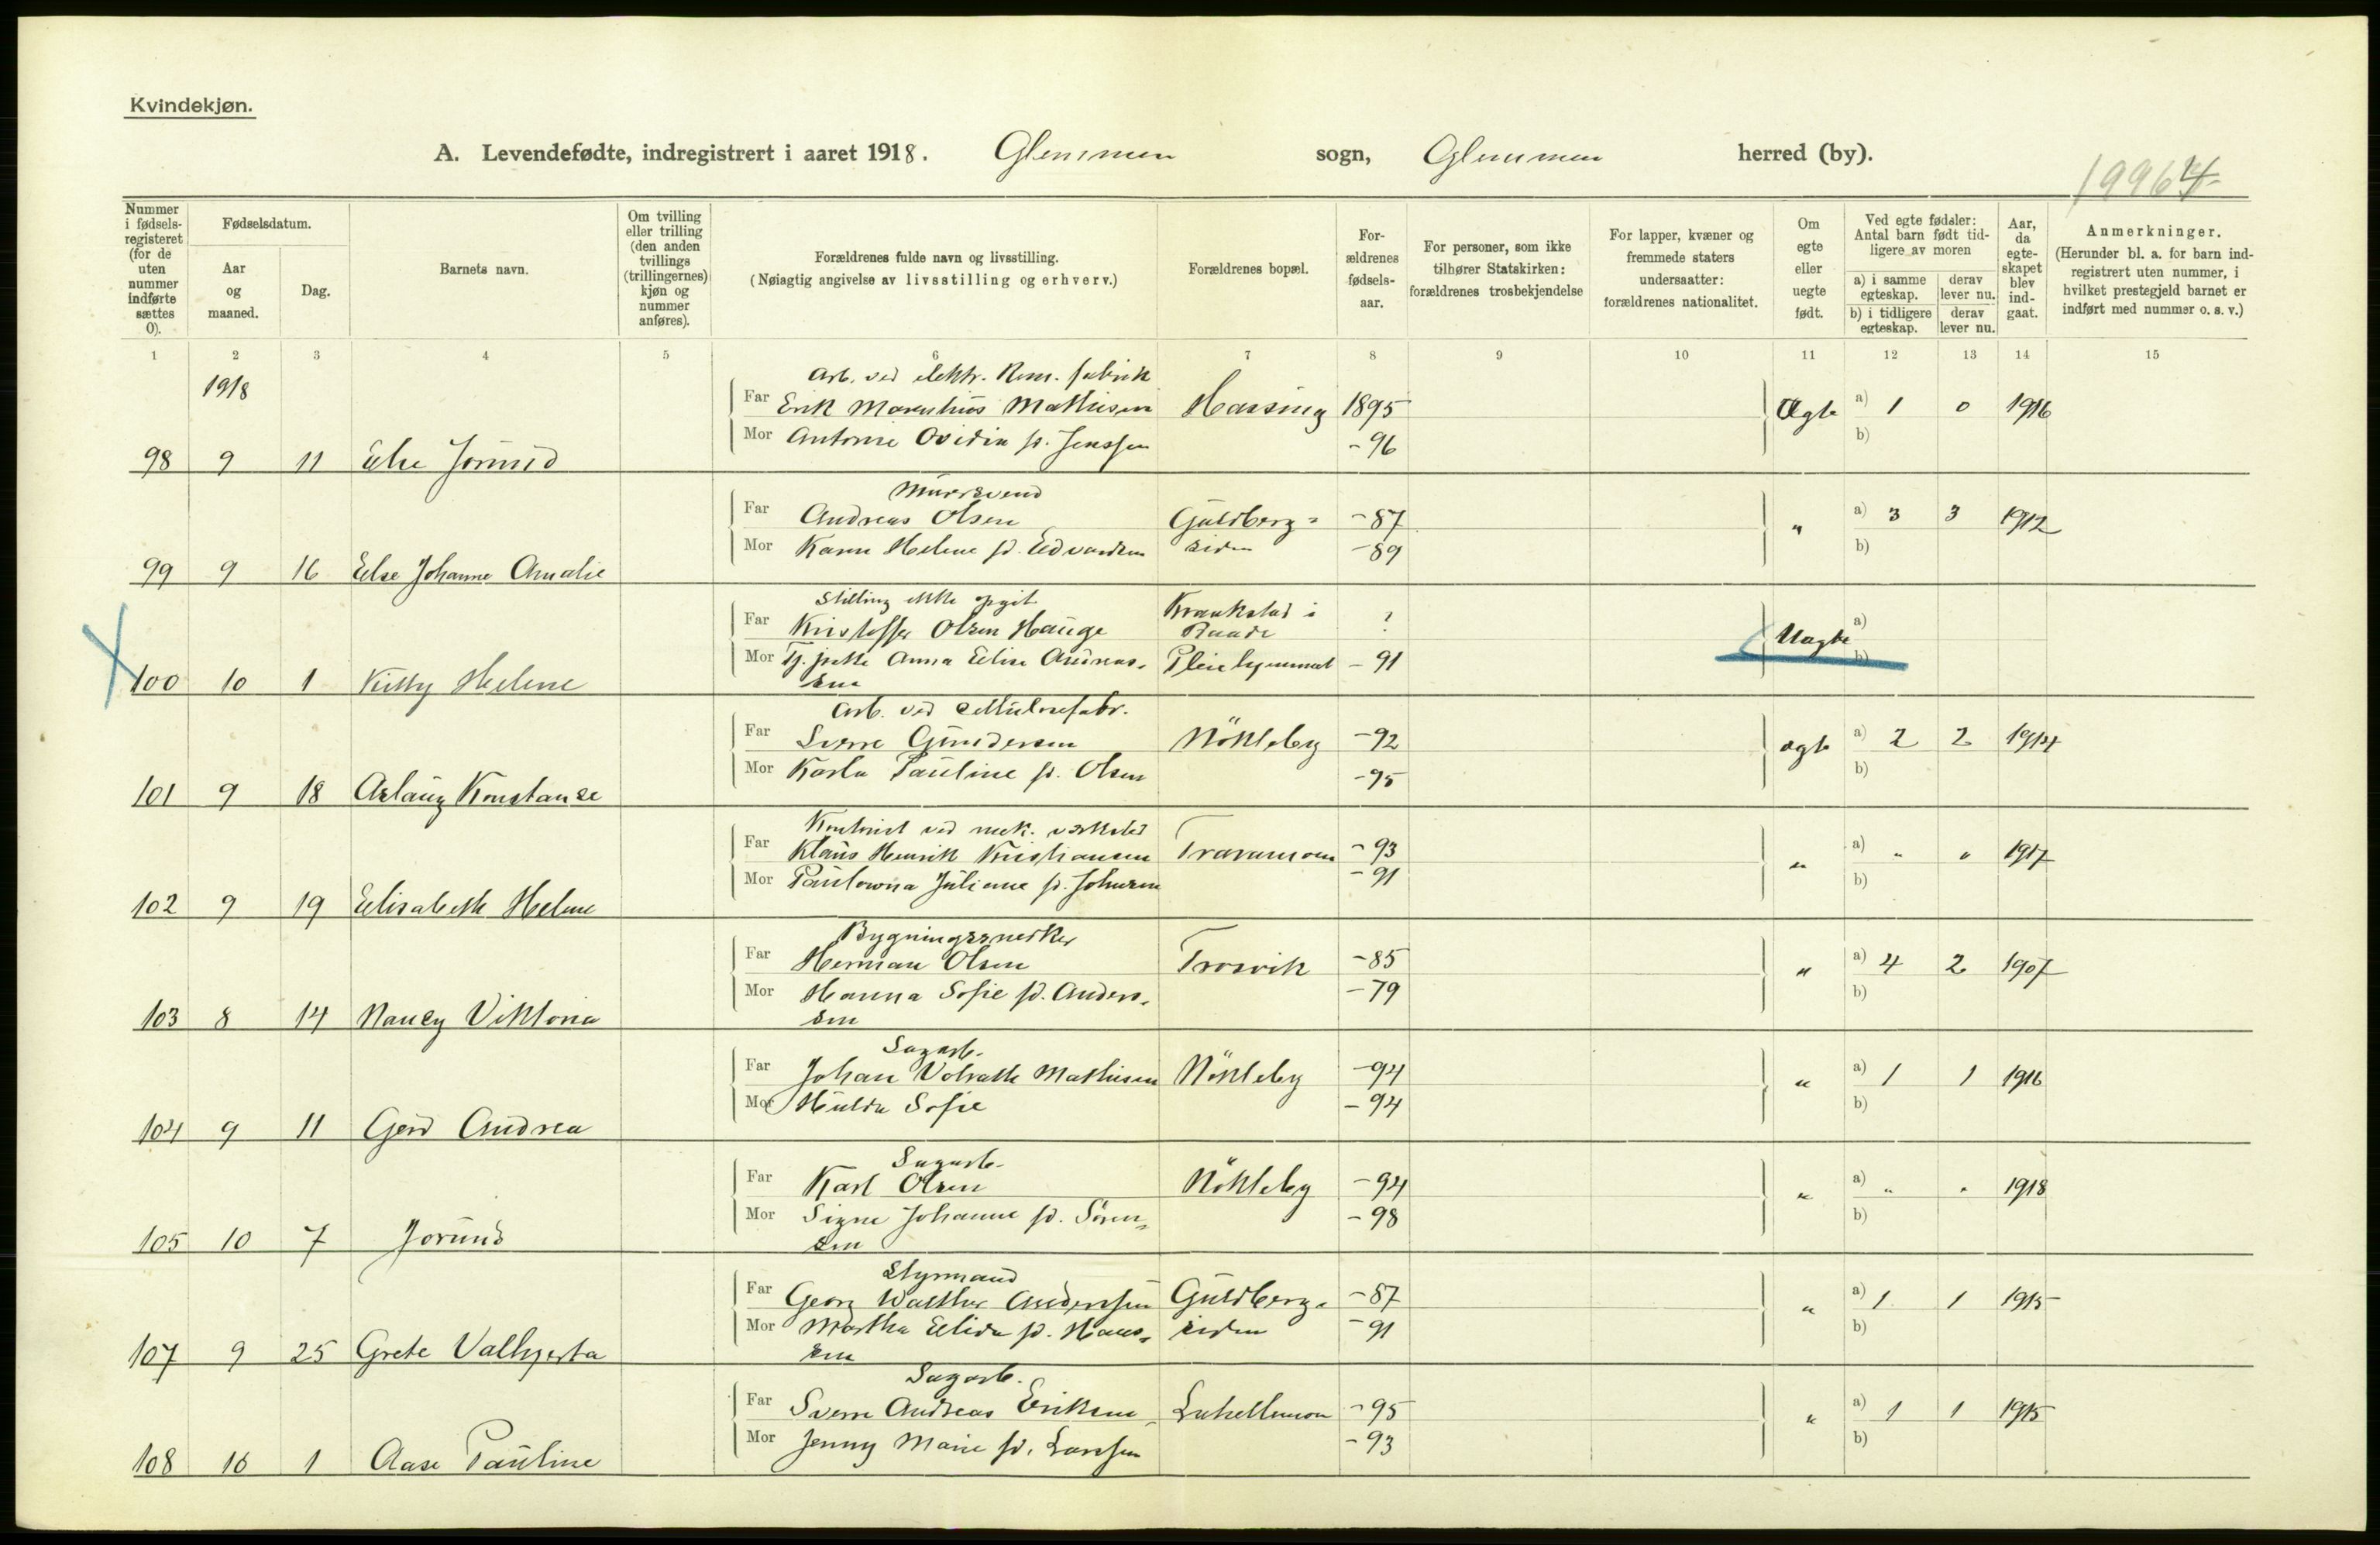 Kvindekjøn.
A. Levendefødte, indregistrert i aaret 1918. Glemmen sogn, Glemmen herred (by).
19964
Nummer i fødsels-registeret (for de uten nummer indførte sættes 0).
Fødselsdatum.
Aar og maaned.
Dag.
Barnets navn.
Om tvilling eller trilling (den anden tvillings (trillingernes) kjøn og nummer anføres).
Forældrenes fulde navn og livsstilling.
(Nøiagtig angivelse av livsstilling og erhverv.)
Forældrenes bopæl.
For-ældrenes fødsels-aar.
For personer, som ikke tilhører Statskirken: forældrenes trosbekjendelse
For lapper, kvæner og fremmede staters undersaatter: forældrenes nationalitet.
Om egte eller uegte født.
Ved egte fødsler: Antal barn født tid-ligere av moren
a) i samme egteskap. derav lever nu.
b) i tidligere egteskap. derav lever nu.
Aar, da egte-skapet blev ind-gaat.
Anmerkninger.
(Herunder bl. a. for barn ind-registrert uten nummer, i hvilket prestegjeld barnet er indført med nummer o. s. v.)
1 2 3 4 5 6 7 8 9 10 11 12 13 14 15
1918
Arb. ved elektr. Kem. fabrik
Far Erik Marentius Mathisen Hassing 1895 Ægte a) 1 0 1916
Mor Antonie Ovidia f. Jenssen - 96 b)
98 9 11 Else Jorund
Mursvend
Far Andreas Olsen Guldberg= - 87 " a) 3 3 1912
Mor Karen Helene f. Edvardsen siden - 89 b)
99 9 16 Else Johanne Amalie
Stilling ikke opgit
Far Kristoffer Olsen Hauge Kraakstad i Raade ? Uegte a)
Mor Tj.pike Anna Elise Andreas- Pleiehjemmet - 91 b)
sen
100 10 1 Kitty Helene
Arb. ved Cellulosefabr.
Far Sverre Gundersen Nökleby - 92 ægte a) 2 2 1914
Mor Karla Pauline f. Olsen - 95 b)
101 9 18 Aslaug Konstanse
Kontorist ved mek. verksted
Far Klaus Henrik Kristiansen Traramoen - 93 " a) " " 1917
Mor Paulowna Juliane f. Johnsen - 91 b)
102 9 19 Elisabeth Helene
Bygningssnedker
Far Herman Olsen Trosvik - 85 " a) 4 2 1907
Mor Hanna Sofie f. Anders- - 79 b)
sen
103 8 14 Nancy Viktoria
Sagarb.
Far Johan Volrath Mathisen Nökleby - 94 " a) 1 1 1916
Mor Hulda Sofie - 94 b)
104 9 11 Gerd Andrea
Sagarb.
Far Karl Olsen Nökleby - 94 " a) " " 1918
Mor Signe Johanne f. Sören- - 98 b)
sen
105 10 7 Jorund
Styrmand
Far Georg Walther Anderssen Guldberg- - 87 " a) 1 1 1915
Mor Martha Elida f. Hans- siden - 91 b)
sen
107 9 25 Grete Valhjerta
Sagarb.
Far Sverre Andreas Eriksen - 95 " a) 1 1 1915
Mor Jenny Marie f. Larssen - 93 b)
108 10 1 Aase Pauline